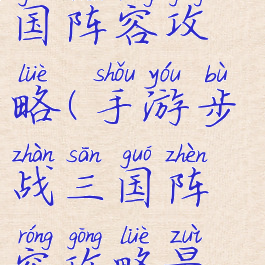 国阵容攻
lüè shǒu yóu bù
略(手游步
zhàn sān guó zhèn
战三国阵
róng gōng lüè zuì
容攻略最